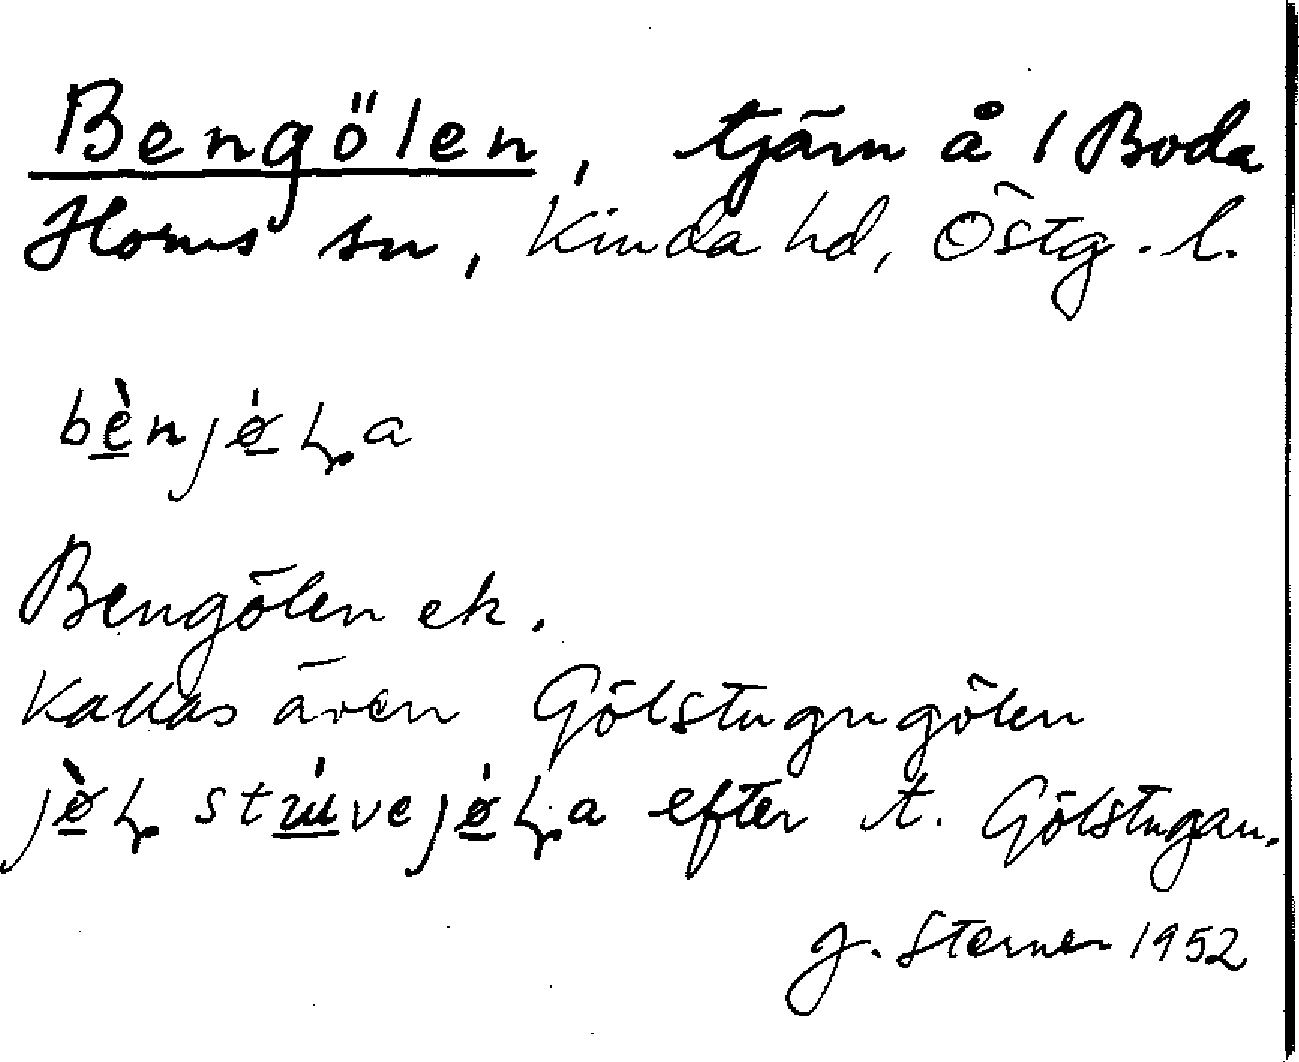 Bengölen, tjärn å 1 Boda
Horns sn, Kinda hd, Östg. l.
bènjø̀ɽa
Bengölen ek.
Kallas även Gölstugugölen
efter t. Gölstugan.
G. Sterner 1952